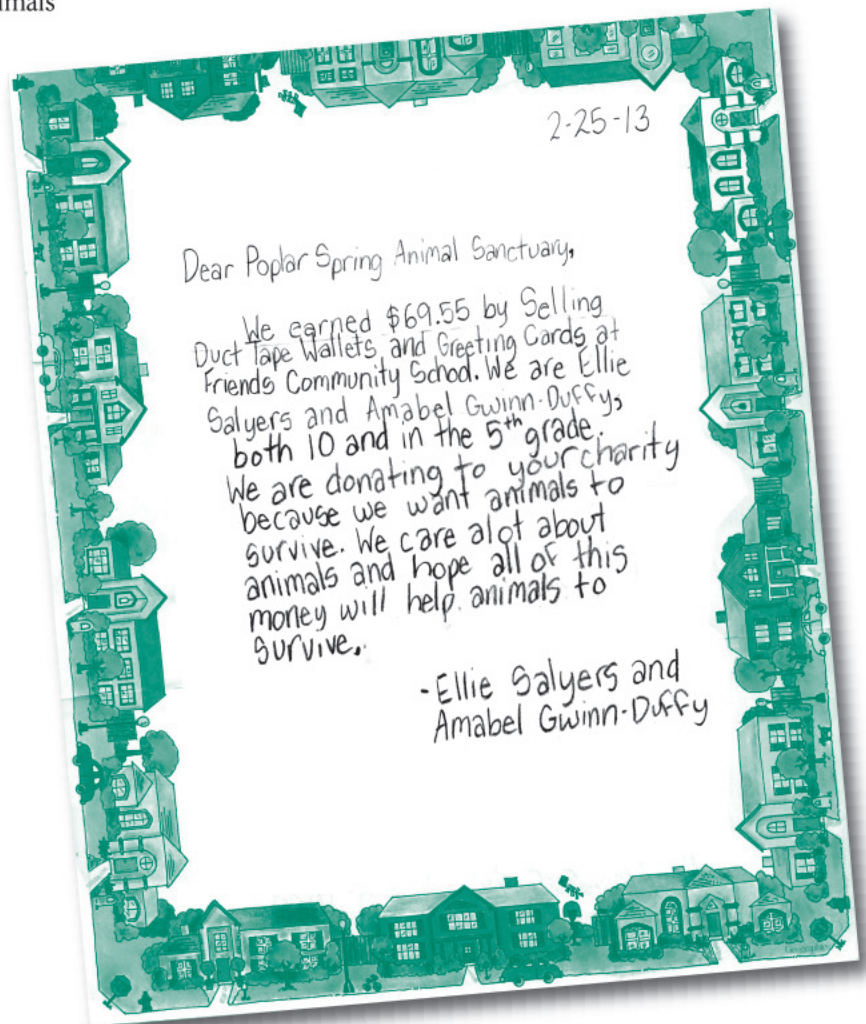 imals
2-25-13
Dear Poplar Spring Animal Sanctuary,
We earned $69.55 by Selling
Duct Tape Wallets and Greeting Cards at
Friends Community School. We are Ellie
Salyers and Amabel Gwinn-Duffy,
both 10 and in the 5th grade.
We are donating to your charity
because we want animals to
survive. We care alot about
animals and hope all of this
money will help animals to
survive.
-Ellie Salyers and
Amabel Gwinn-Duffy